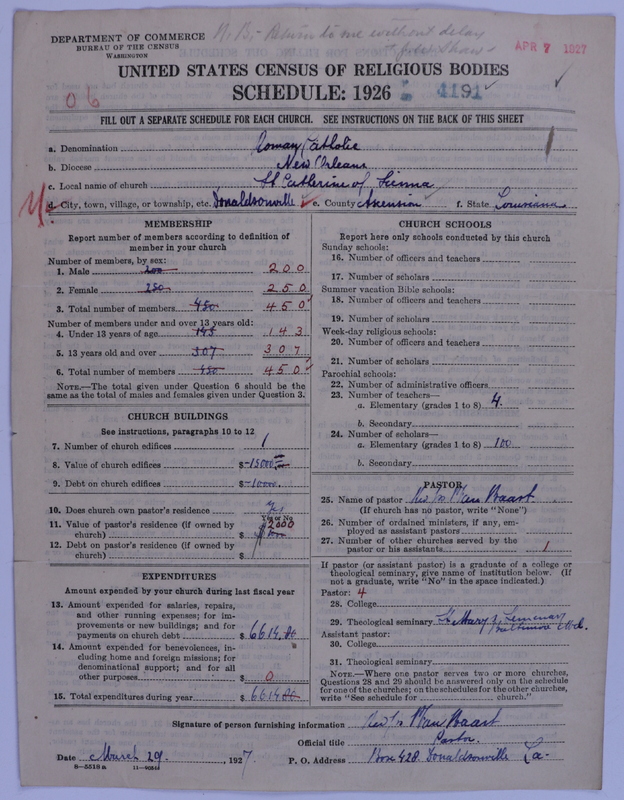 N.B. - Return to me without delay
DEPARTMENT OF COMMERCE
BUREAU OF THE CENSUS
WASHINGTON
APR 7 1927
UNITED STATES CENSUS OF RELIGIOUS BODIES
06
SCHEDULE: 1926
4191
FILL OUT A SEPARATE SCHEDULE FOR EACH CHURCH. SEE INSTRUCTIONS ON THE BACK OF THIS SHEET
a. Denomination Roman Catholic
b. Diocese New Orleans
c. Local name of church St Catherine of Sienna
d. City, town, village, or township, etc. Donaldsonville e. County Ascension f. State Louisiana
MEMBERSHIP
Report number of members according to definition of
member in your church
Number of members, by sex:
1. Male 200 200
2. Female 250 250
3. Total number of members 450 450
Number of members under and over 13 years old:
4. Under 13 years of age 143 143
5. 13 years old and over 307 307
6. Total number of members 450 450
NOTE.—The total given under Question 6 should be the
same as the total of males and females given under Question 3.
CHURCH BUILDINGS
See instructions, paragraphs 10 to 12
7. Number of church edifices 1
8. Value of church edifices $ 15000
9. Debt on church edifices $
10. Does church own pastor's residence Yes
Yes or No
11. Value of pastor's residence (if owned by
church) $ 2000
12. Debt on pastor's residence (if owned by
church) $
EXPENDITURES
Amount expended by your church during last fiscal year
13. Amount expended for salaries, repairs,
and other running expenses; for im-
provements or new buildings; and for
payments on church debt $ 6614.80
14. Amount expended for benevolences, in-
cluding home and foreign missions; for
denominational support; and for all
other purposes $ 0
15. Total expenditures during year $ 6614.80
CHURCH SCHOOLS
Report here only schools conducted by this church
Sunday schools:
16. Number of officers and teachers
17. Number of scholars
Summer vacation Bible schools:
18. Number of officers and teachers
19. Number of scholars
Week-day religious schools:
20. Number of officers and teachers
21. Number of scholars
Parochial schools:
22. Number of administrative officers
23. Number of teachers—
a. Elementary (grades 1 to 8) 4
b. Secondary
24. Number of scholars—
a. Elementary (grades 1 to 8) 100
b. Secondary
PASTOR
25. Name of pastor Rev. Jr. Van Baast
(If church has no pastor, write "None")
26. Number of ordained ministers, if any, em-
ployed as assistant pastors
27. Number of other churches served by the
pastor or his assistants 1
If pastor (or assistant pastor) is a graduate of a college or
theological seminary, give name of institution below. (If
not a graduate, write "No" in the space indicated.)
Pastor: 4
28. College
29. Theological seminary St Mary's Seminary
Baltimore Md.
Assistant pastor:
30. College
31. Theological seminary
NOTE.—Where one pastor serves two or more churches,
Questions 28 and 29 should be answered only on the schedule
for one of the churches; on the schedules for the other churches,
write "See schedule for church."
Signature of person furnishing information Rev. Jr. Van Baast
Official title Pastor
Date March 29, 1927 P. O. Address Box 428 Donaldsonville La.
8—5518a 11—9051